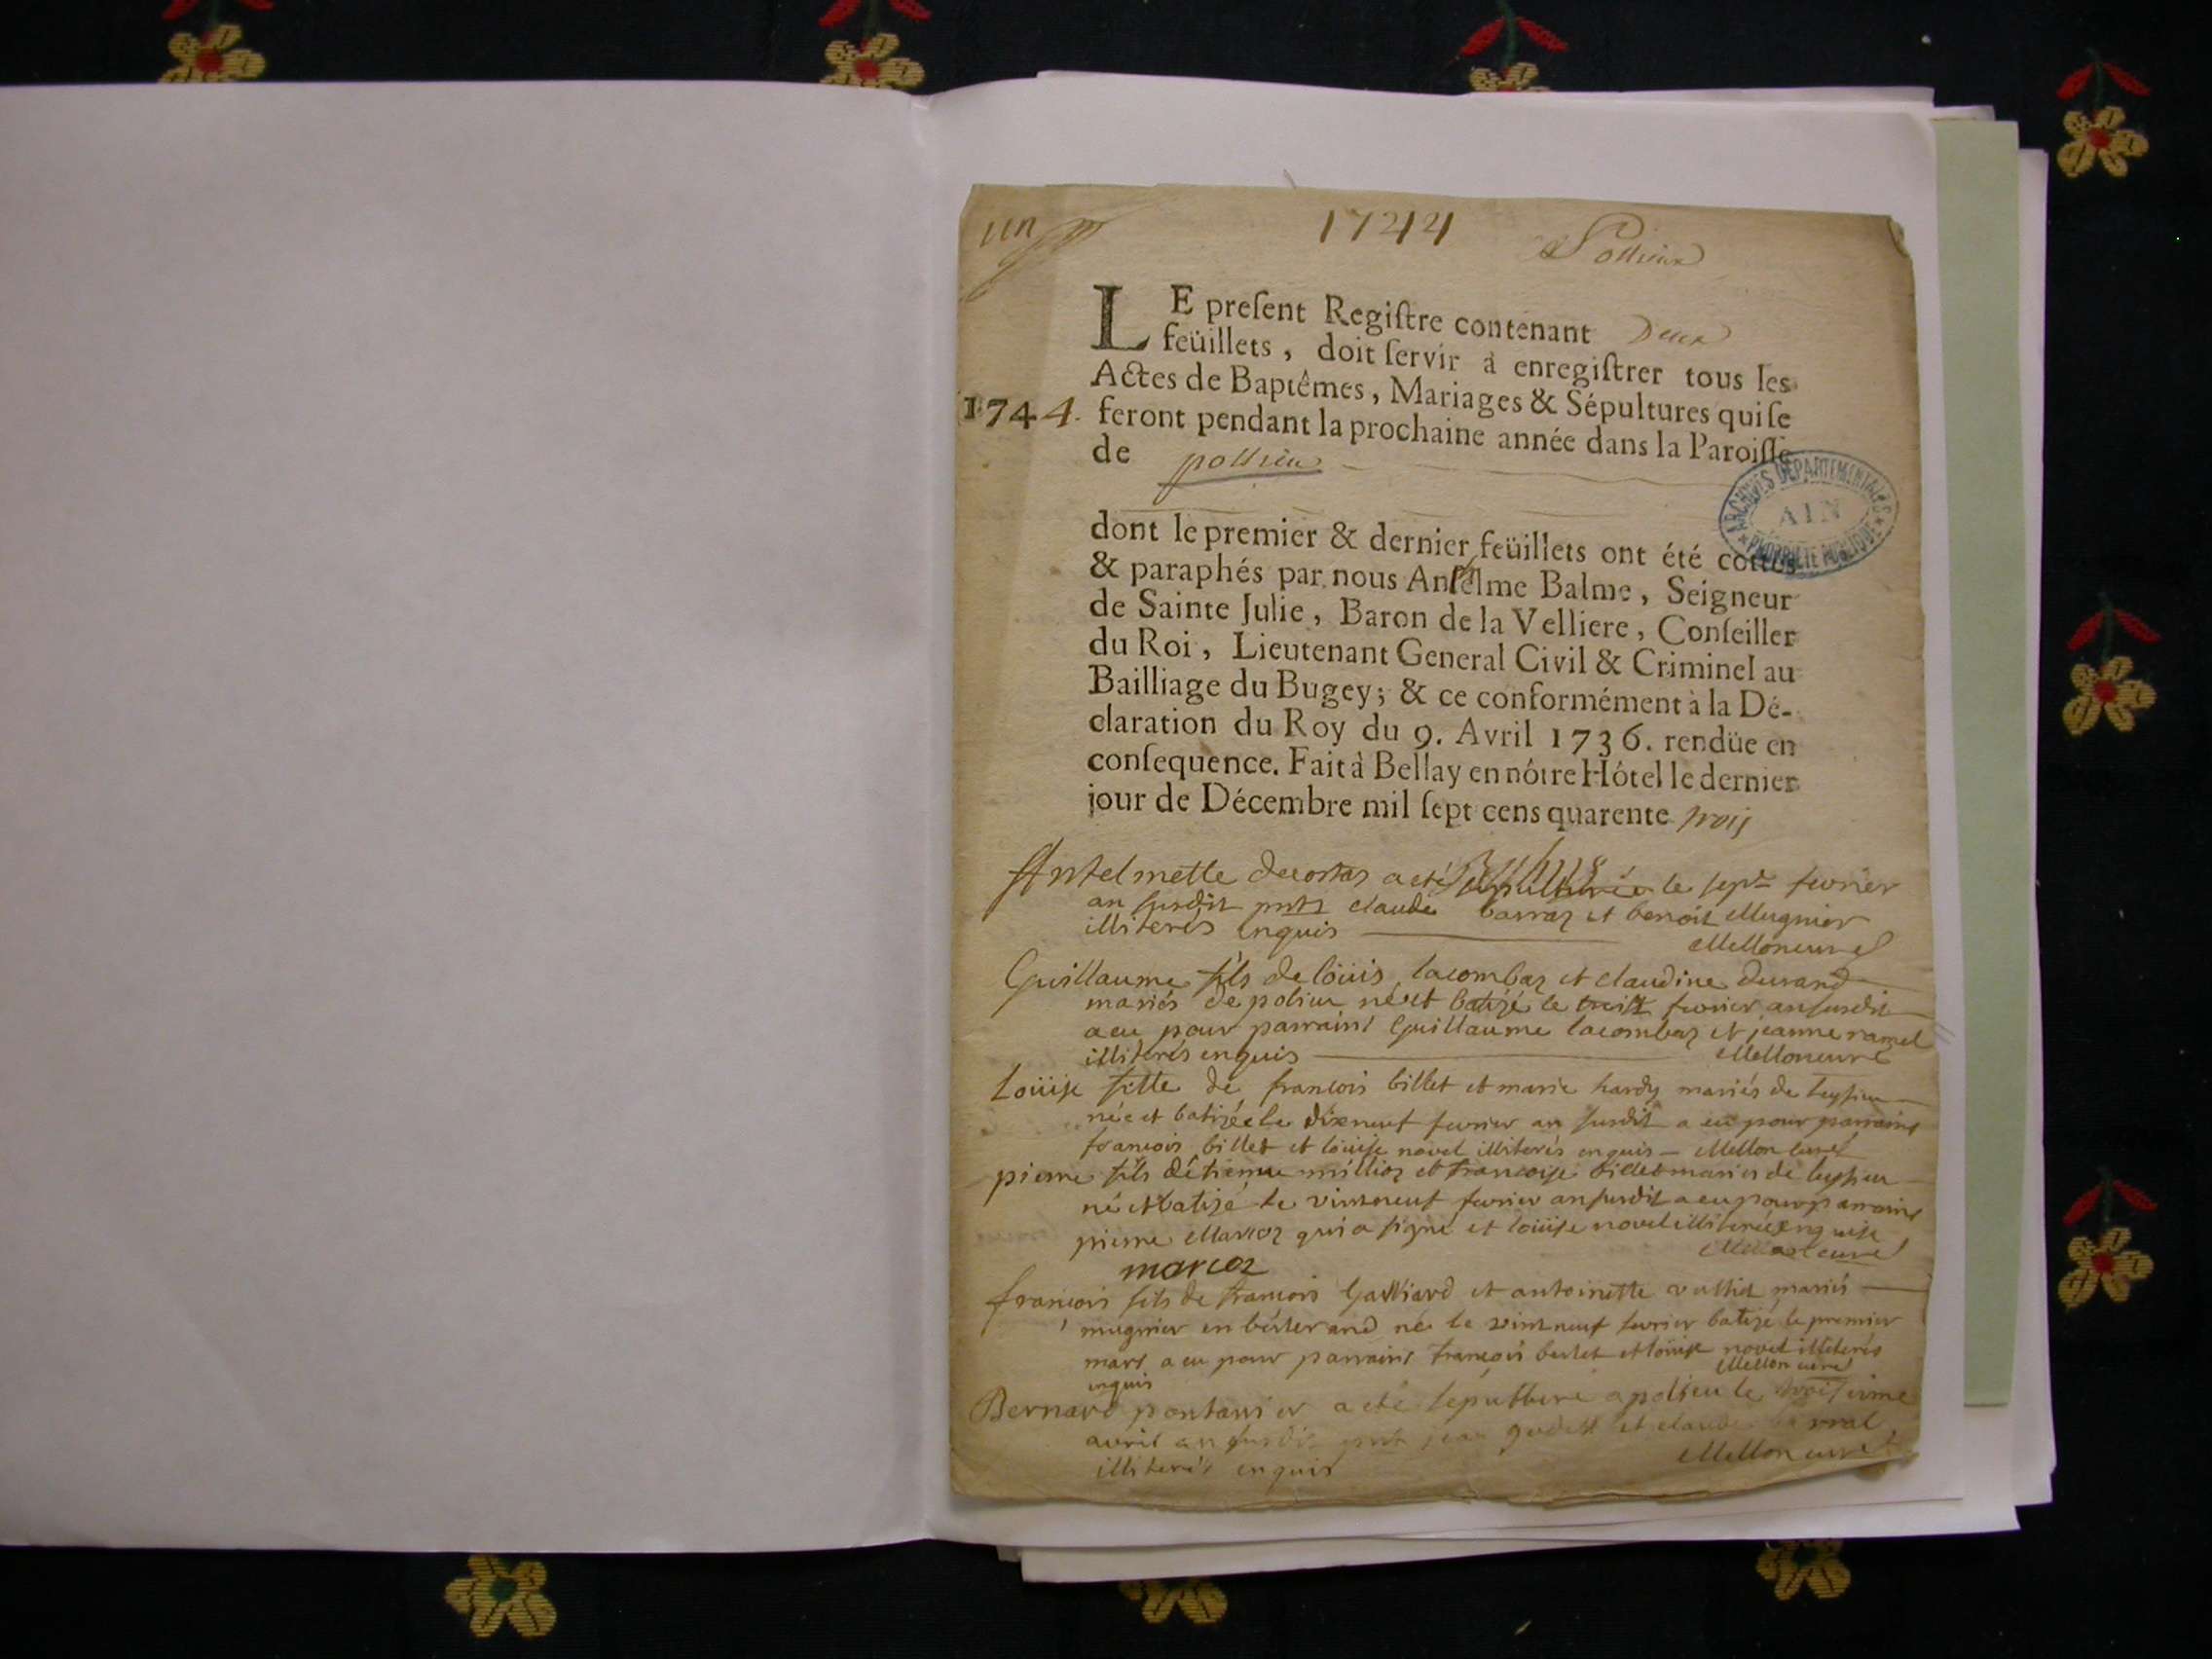 un
1744
Pollieu
LE preſent Regiſtre contenant Deux
feüillets, doit ſervir à enregiſtrer tous les
Actes de Baptêmes, Mariages & Sépultures qui ſe
1744. feront pendant la prochaine année dans la Paroiſſe
de pollieu
ARCHIVES DEPARTEMENTALES
AIN
PROPRIETE PUBLIQUE
dont le premier & dernier feüillets ont été cottés
& paraphés par nous Anſelme Balme, Seigneur
de Sainte Julie, Baron de la Velliere, Conſeiller
du Roi, Lieutenant General Civil & Criminel au
Bailliage du Bugey; & ce conformément à la Dé-
claration du Roy du 9. Avril 1736. rendüe en
conſequence. Fait à Bellay en nôtre Hôtel le dernier
jour de Décembre mil ſept cens quarente trois
Antelmette a eté le sept fevrier
an susdit claude barraz et benoit Mugnier
illiterés enquis
Mellon curé
Guillaume fils de loüis lacombaz et claudine durand
mariés de polieu né et batizé le fevrier an susdit
a eu pour parrains Guillaume lacombaz et jeanne ramel
illiterés enquis Mellon curé
Loüise fille de francois billet et marie hardy mariés de
née et batizée le dixneuf fevrier an susdit a eu pour parrains
francois billet et loüise novel illiterés enquis Mellon curé
pierre fils d'etienne millioz et francoise billet mariés de
né et batizé le vintneuf fevrier an susdit a eu pour parrains
pierre Marcoz qui a signé et loüise novel illiterée enquise
Mellon curé
marcoz
francois fils de francois Galliard et antoinette mariés
mugnier en né le vint neuf fevrier batizé le premier
mars a eu pour parrains francois et loüise novel illiterés
enquis Mellon curé
Bernard a eté sepulturé a polieu le troisieme
avril an susdit jean et claude barral
illiterés enquis Mellon curé